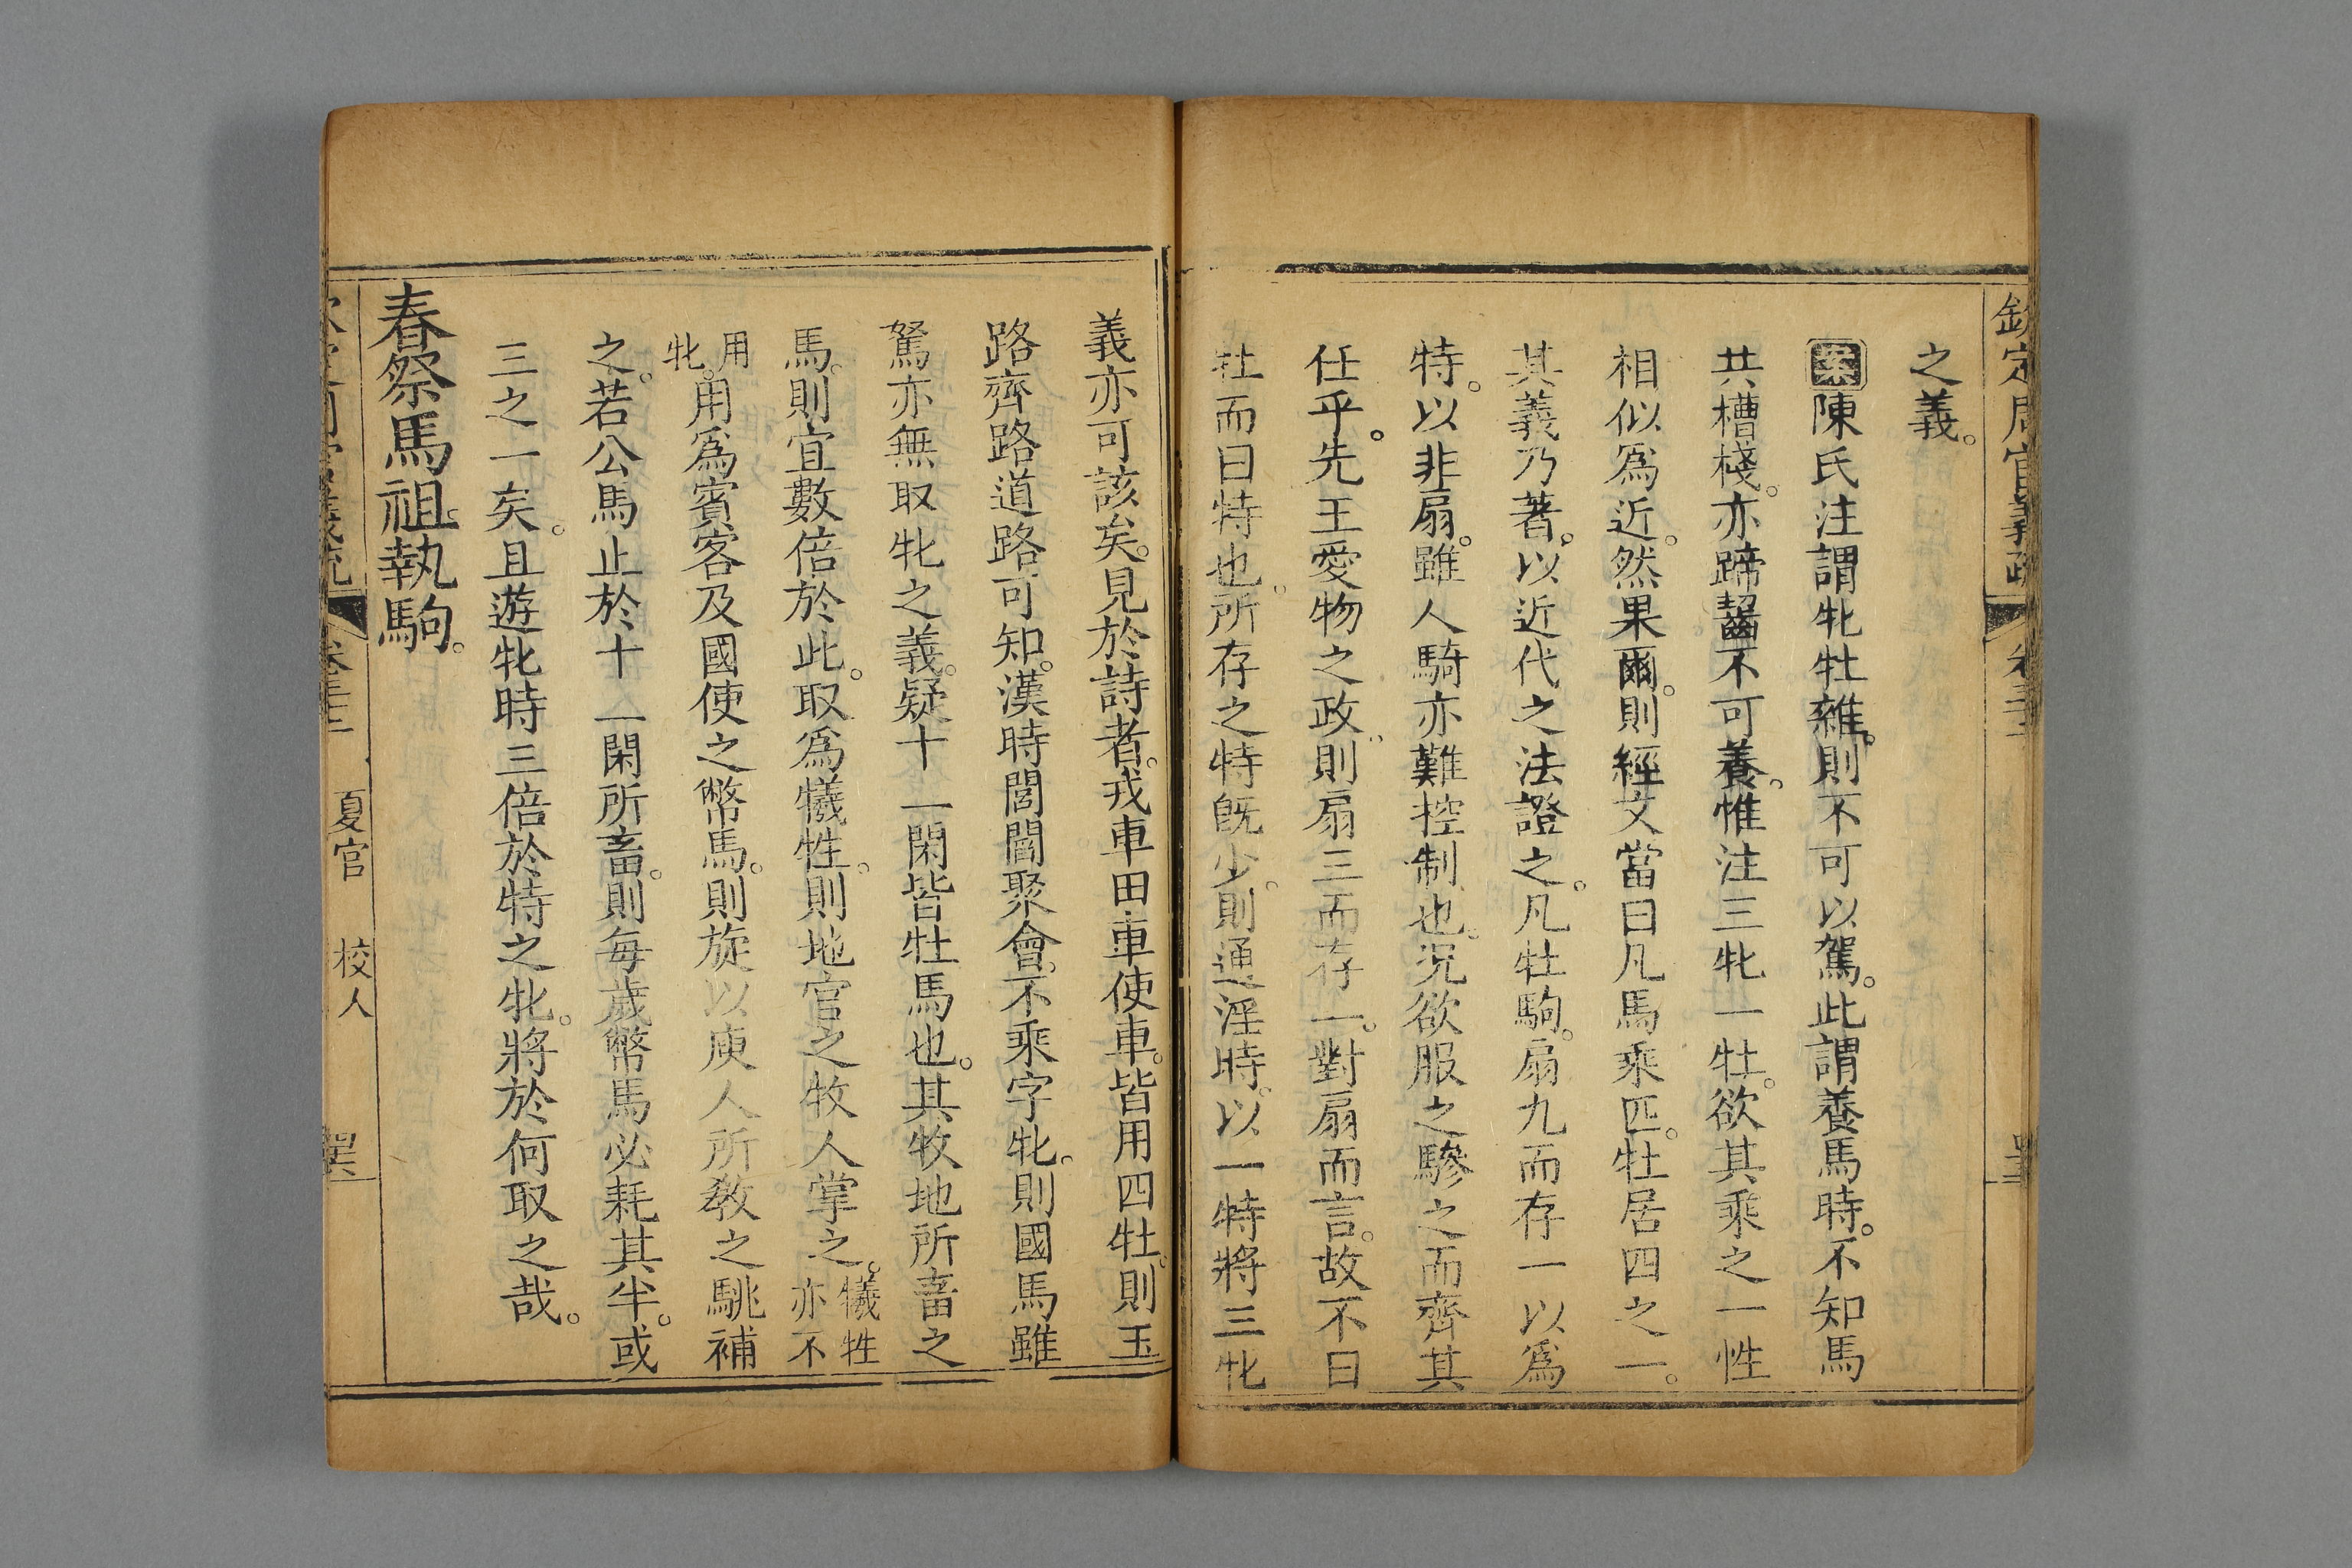 欽定周官義疏 卷三十二
之義。
案陳氏注謂牝牡雜。則不可以駕。此謂養馬時。不知馬
共槽棧。亦蹄齧不可養。惟注三牝一牡。欲其乘之一性
相似爲近。然果爾。則經文當曰凡馬乘匹。牡居四之一。
其義乃著。以近代之法證之。凡牡駒。扇九而存一以爲
特。以非扇。雖人騎亦難控制也。況欲服之驂之而齊其
任乎。先王愛物之政。則扇三而存一。對扇而言。故不曰
牡而曰特也。所存之特旣少。則通淫時。以一特將三牝
義亦可該矣。見於詩者。戎車田車使車。皆用四牡。則玉
路齊路道路可知。漢時閭閻聚會。不乘字牝。則國馬雖
駑亦無取牝之義。疑十一閑皆牡馬也。其牧地所畜之
馬。則宜數倍於此。取爲犧牲。則地官之牧人掌之。犧牲亦不
用牝。用爲賓客及國使之幣馬。則旋以庾人所敎之駣補
之。若公馬止於十一閑所畜。則每歲幣馬必耗其半。或
三之一矣。且遊牝時三倍於特之牝。將於何取之哉。
春祭馬祖。執駒。
卷三十二 夏官 校人